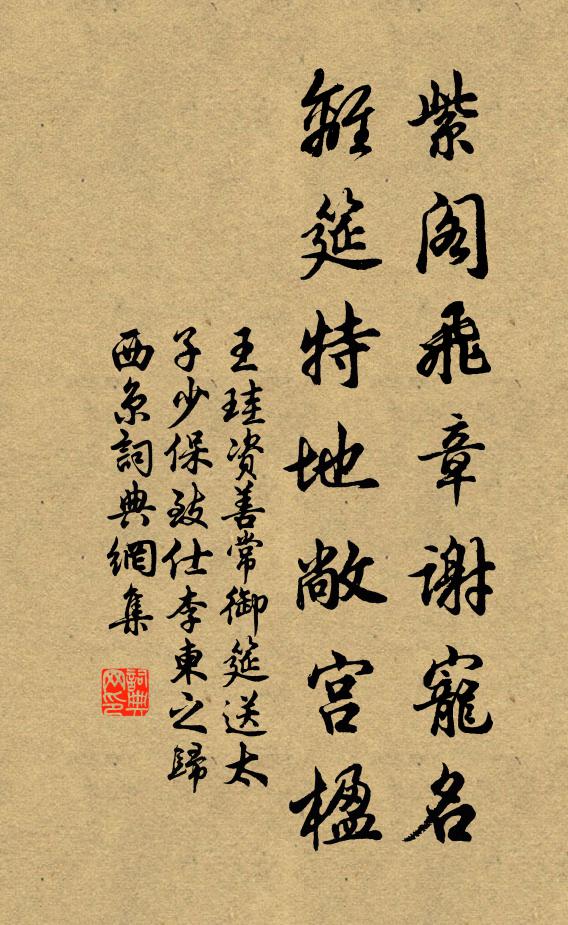 紫阁飛章謝寵名
離筵特地敞宫楹
王珪资善常御筵送太
子少保致仕李東之歸
西京詞典網集
詞典網印